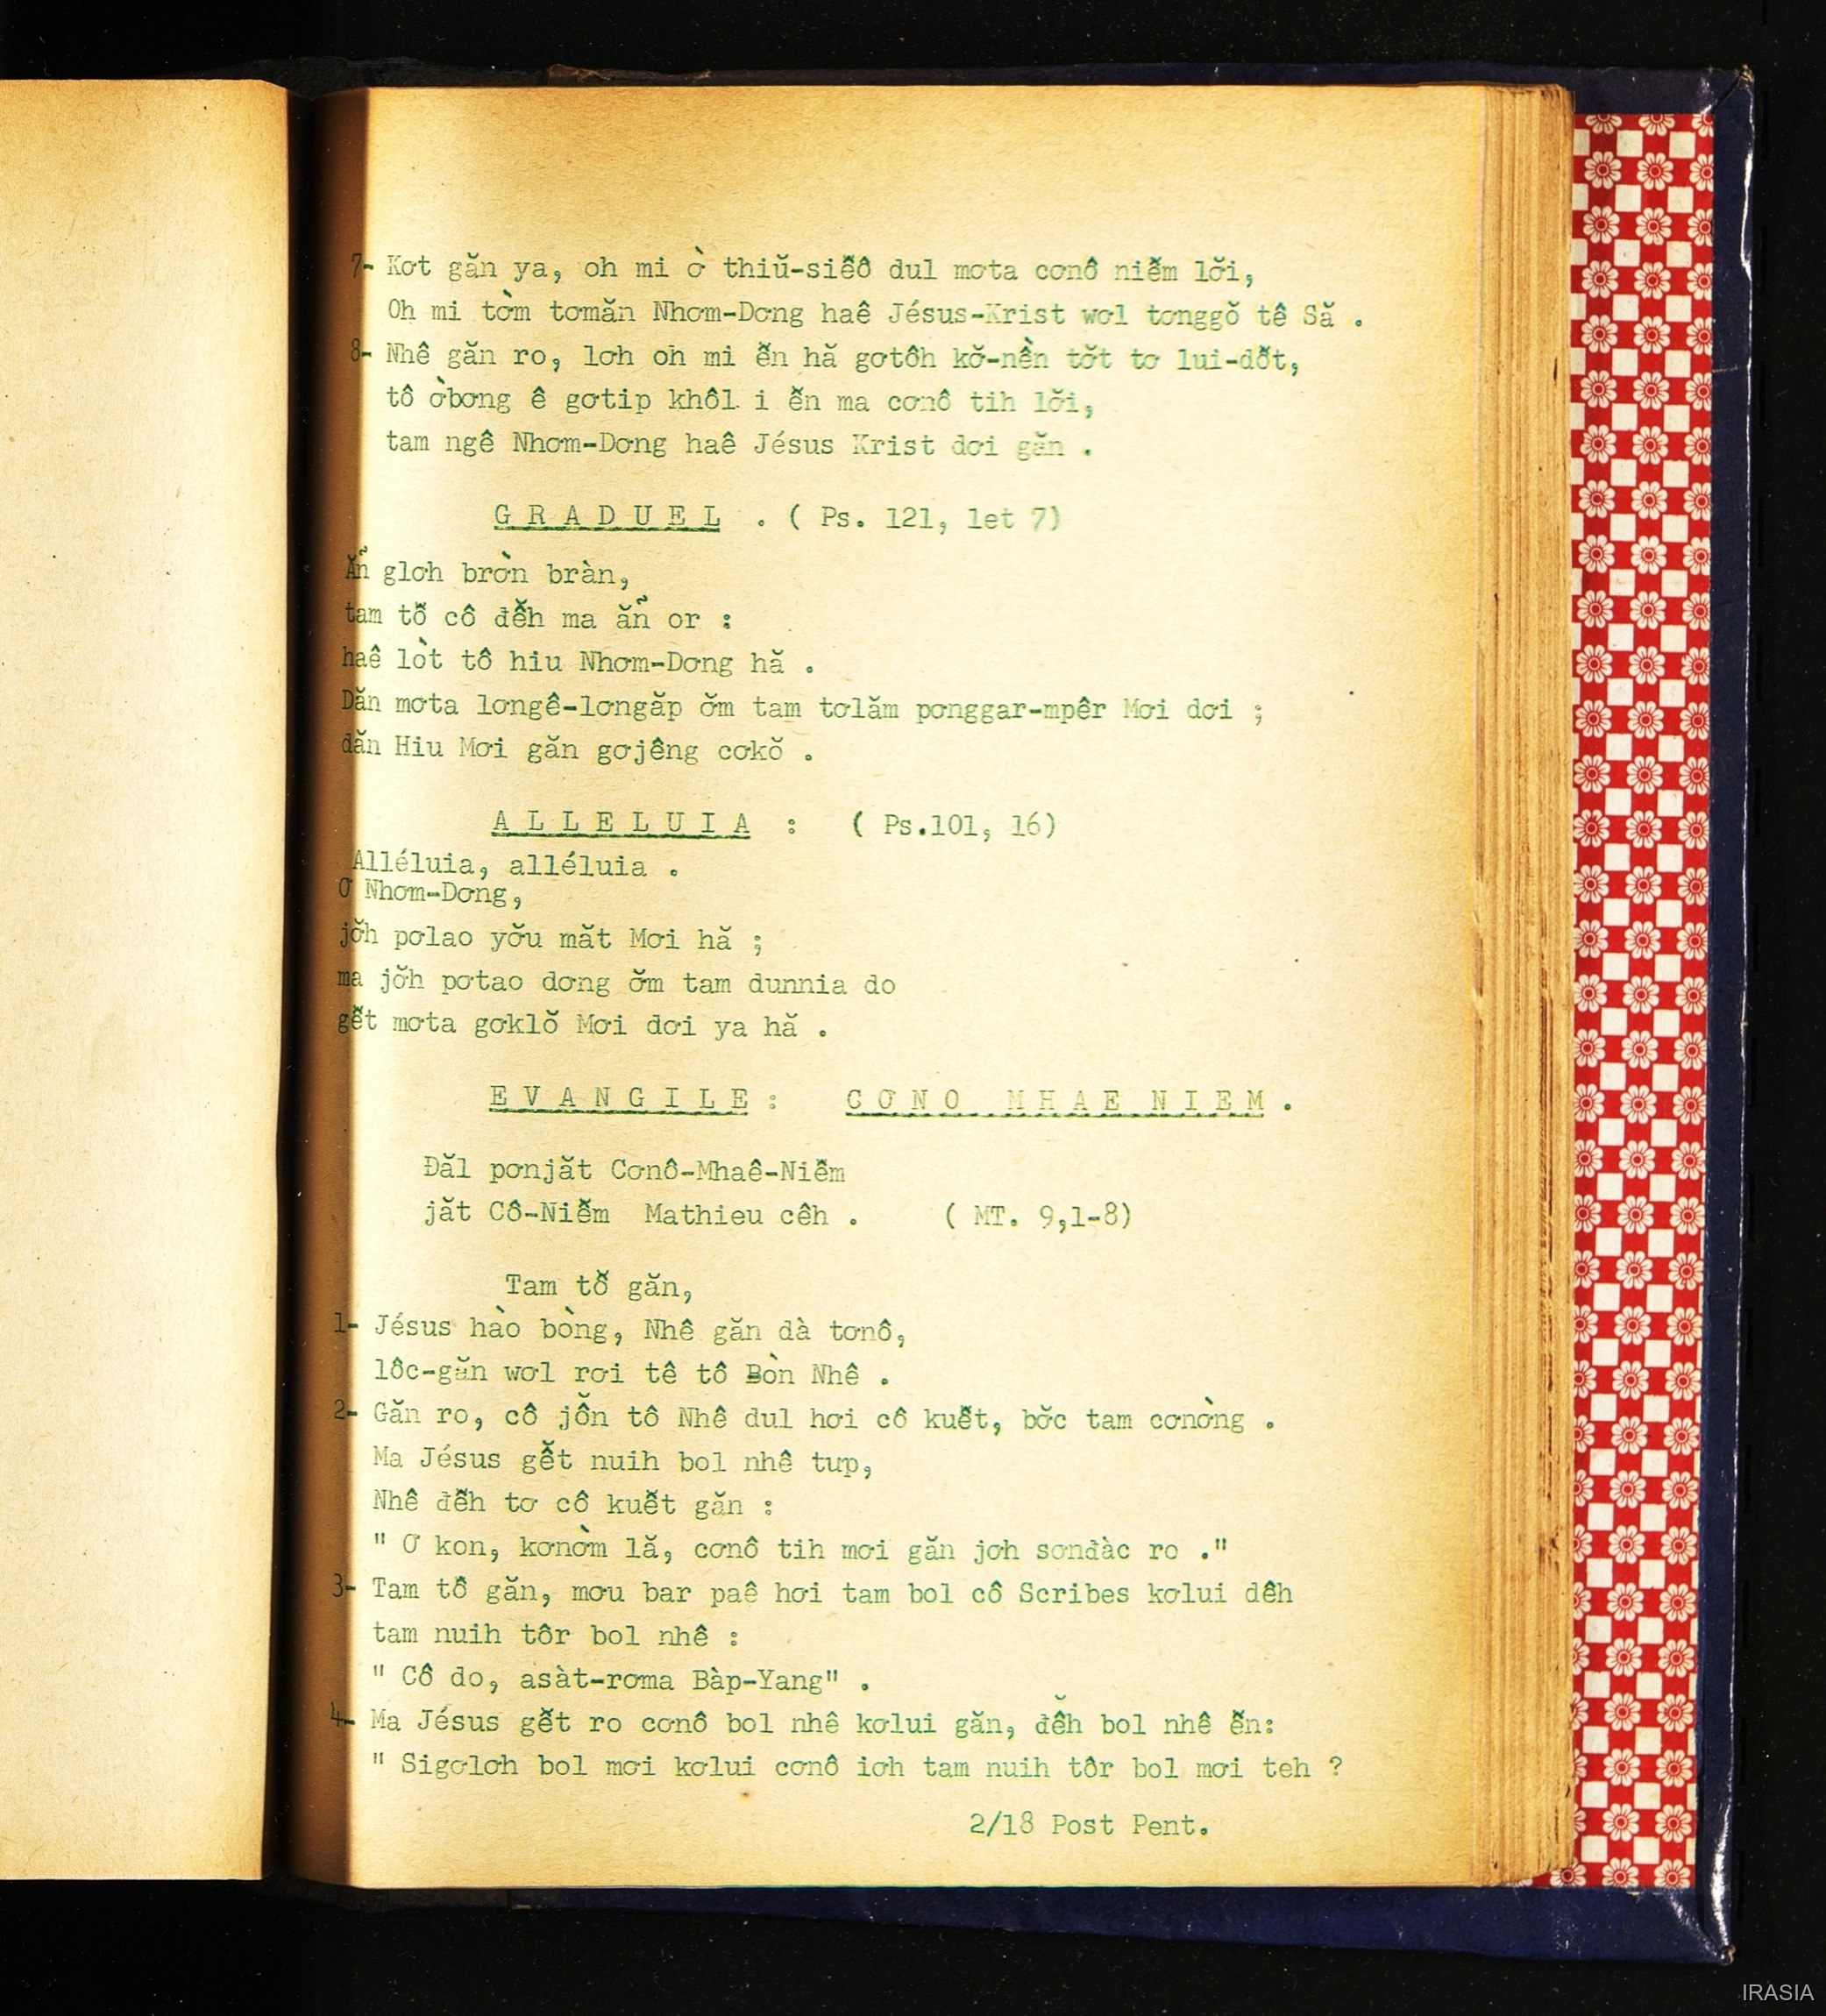 7- Kơt găn ya, oh mi ờ thiŭ-siễô dul mơta cơnô niễm lơ̆i,
Oh mi tờm tơmăn Nhơm-Dơng haê Jésus-Krist wơl tơnggŏ tê Să .
8- Nhê găn ro, lơh oh mi ễn hă gơtôh kơ̆-nền tơ̆t tơ lui-dô̆t,
tô ờbơng ê gơtip khôl i ễn ma cơnô tih lơ̆i,
tam ngê Nhơm-Dơng haê Jésus Krist dơi găn .
G R A D U E L . ( Ps. 121, let 7)
Ăñ glơh brờn bràn,
tam tô̆ cô đê̆h ma ăñ or :
haê lòt tô hiu Nhơm-Dơng hă .
Dăn mơta lơngê-lơngăp ơ̆m tam tơlăm pơnggar-mpêr Mơi dơi ;
dăn Hiu Mơi găn gơjêng cơkŏ .
A L L E L U I A : ( Ps.101, 16)
Alléluia, alléluia .
Ơ Nhơm-Dơng,
jơ̆h pơlao yơ̆u măt Mơi hă ;
ma jơ̆h pơtao dơng ơ̆m tam dunnia do
gê̆t mơta gơklŏ Mơi dơi ya hă .
E V A N G I L E : C Ơ N O M H A E N I E M .
Đăl pơnjăt Cơnô-Mhaê-Niê̆m
jăt Cô-Niê̆m Mathieu cêh . ( MT. 9,1-8)
Tam tô̆ găn,
1- Jésus hào bòng, Nhê găn dà tơnô,
lôc-găn wơl rơi tê tô Bòn Nhê .
2- Găn ro, cô jô̆n tô Nhê dul hơi cô kuê̆t, bơ̆c tam cơnòng .
Ma Jésus gê̆t nuih bol nhê tưp,
Nhê đê̆h tơ cô kuê̆t găn :
" Ơ kon, kơnờm lă, cơnô tih mơi găn jơh sơnđàc ro ."
3- Tam tô̆ găn, mơu bar paê hơi tam bol cô Scribes kơlui dêh
tam nuih tôr bol nhê :
" Cô do, asàt-rơma Bàp-Yang" .
4- Ma Jésus gê̆t ro cơnô bol nhê kơlui găn, đê̆h bol nhê ê̆n:
" Sigơlơh bol mơi kơlui cơnô iơh tam nuih tôr bol mơi teh ?
2/18 Post Pent.
IRASIA